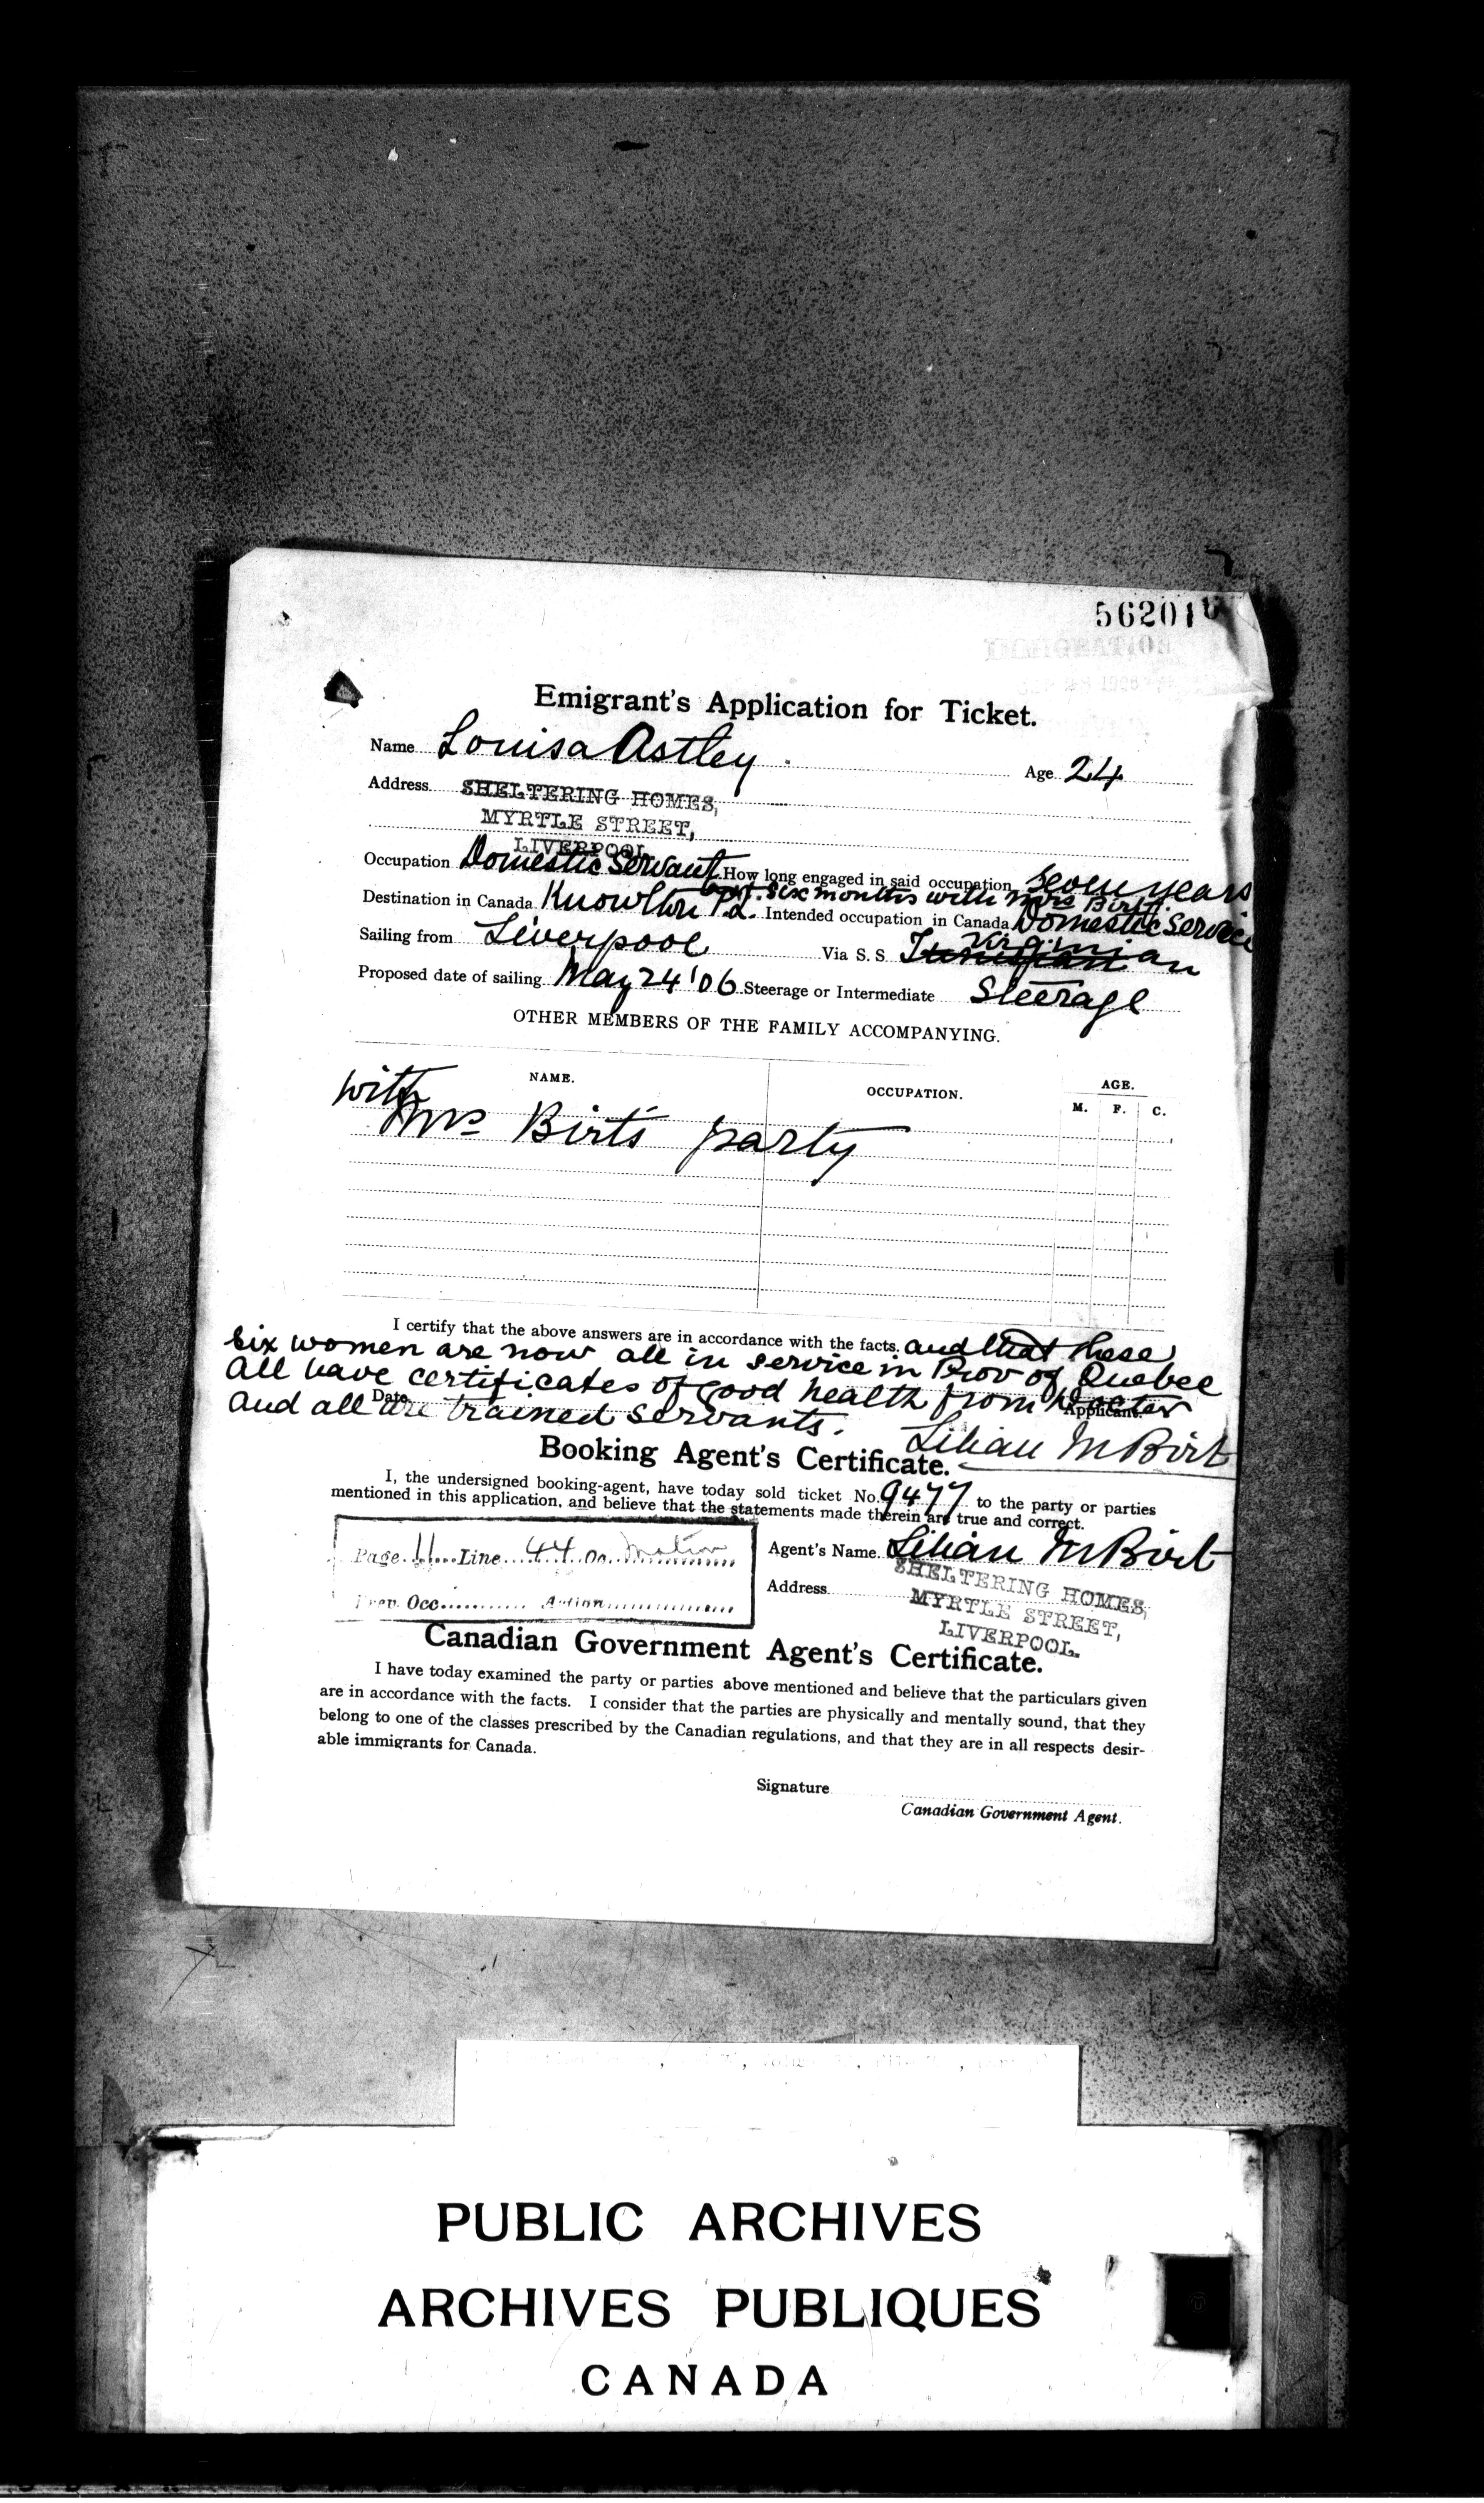 562010
Emigrant's Application for Ticket.
Name Louisa Astley Age 24
Address SHELTERING HOMES,
MYRTLE STREET,
LIVERPOOL
Occupation Domestic Servant How long engaged in said occupation seven years
last six months with Mrs Birt
Destination in Canada Knowlton P.Q. Intended occupation in Canada Domestic Service
Sailing from Liverpool Via S. S. Tunisian Virginian
Proposed date of sailing May 24 '06 Steerage or Intermediate Steerage
OTHER MEMBERS OF THE FAMILY ACCOMPANYING.
NAME. OCCUPATION. AGE.
M. F. C.
with
Mrs Birt's party
I certify that the above answers are in accordance with the facts. and that these
six women are now all in service in Prov of Quebec
All have certificates of good health from Doctor
Date Applicant.
and all are trained servants.
Lilian M Birt
Booking Agent's Certificate.
I, the undersigned booking-agent, have today sold ticket No. 9477 to the party or parties
mentioned in this application, and believe that the statements made therein are true and correct.
Page 11 Line 44 Oc. Matron
Prev. Occ. Action
Agent's Name Lilian M Birt
Address SHELTERING HOMES,
MYRTLE STREET,
LIVERPOOL.
Canadian Government Agent's Certificate.
I have today examined the party or parties above mentioned and believe that the particulars given
are in accordance with the facts. I consider that the parties are physically and mentally sound, that they
belong to one of the classes prescribed by the Canadian regulations, and that they are in all respects desir-
able immigrants for Canada.
Signature
Canadian Government Agent.
PUBLIC ARCHIVES
ARCHIVES PUBLIQUES
CANADA